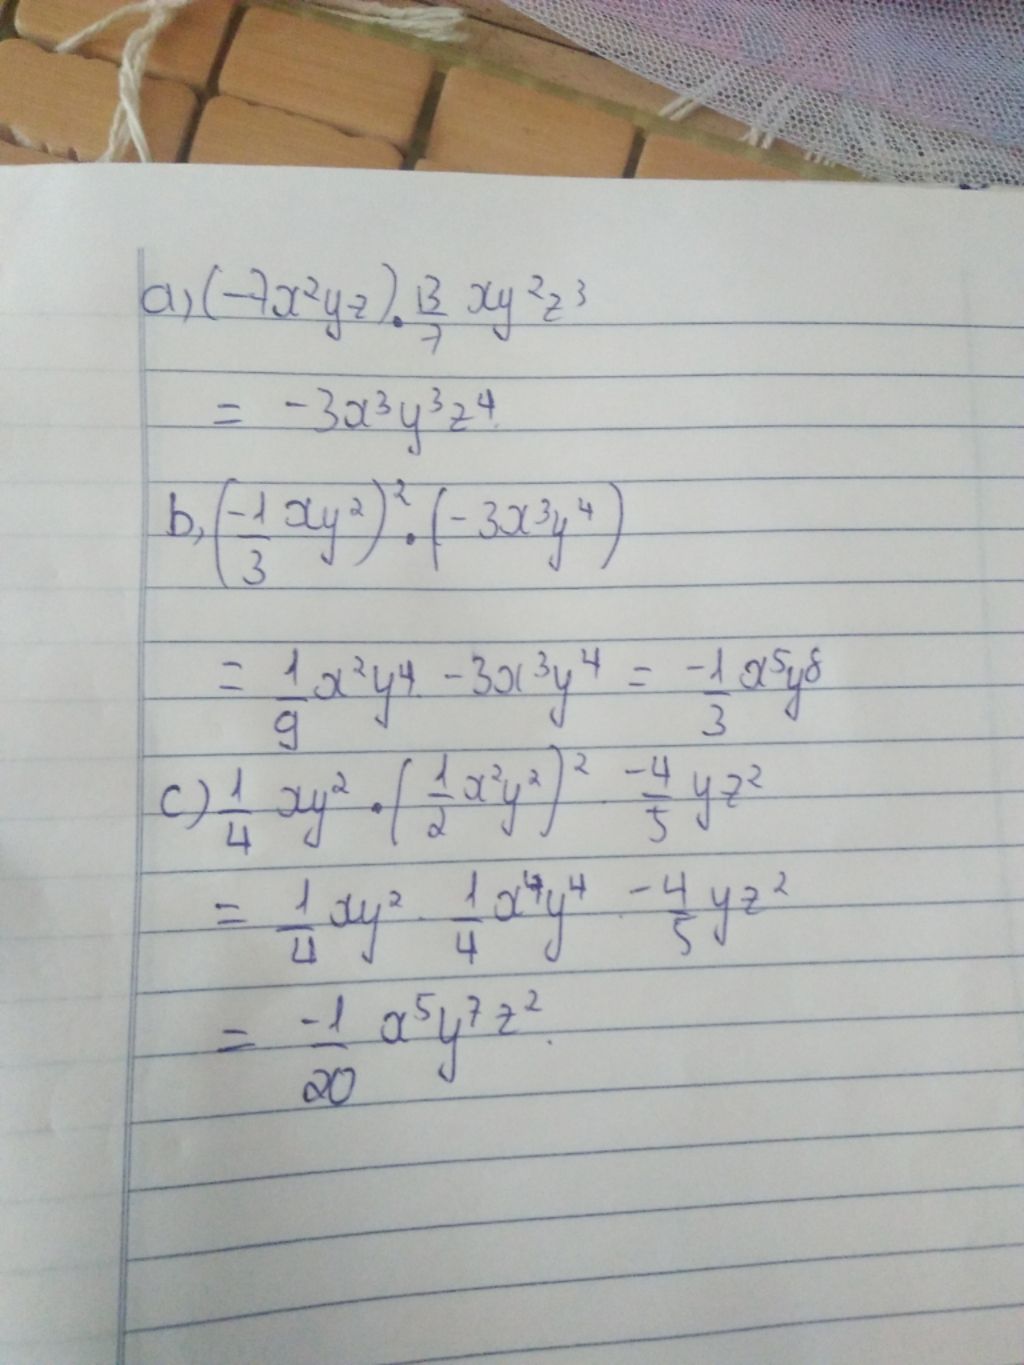 a, (-7x²yz) . 3/7 xy²z³
= -3x³y³z⁴.
b, (-1/3 xy²)² . (-3x³y⁴)
= 1/9 x²y⁴. -3x³y⁴ = -1/3 x⁵y⁸
c) 1/4 xy² . (1/2 x²y²)² . -4/5 yz²
= 1/4 xy² . 1/4 x⁴y⁴ . -4/5 yz²
= -1/20 x⁵y⁷z².